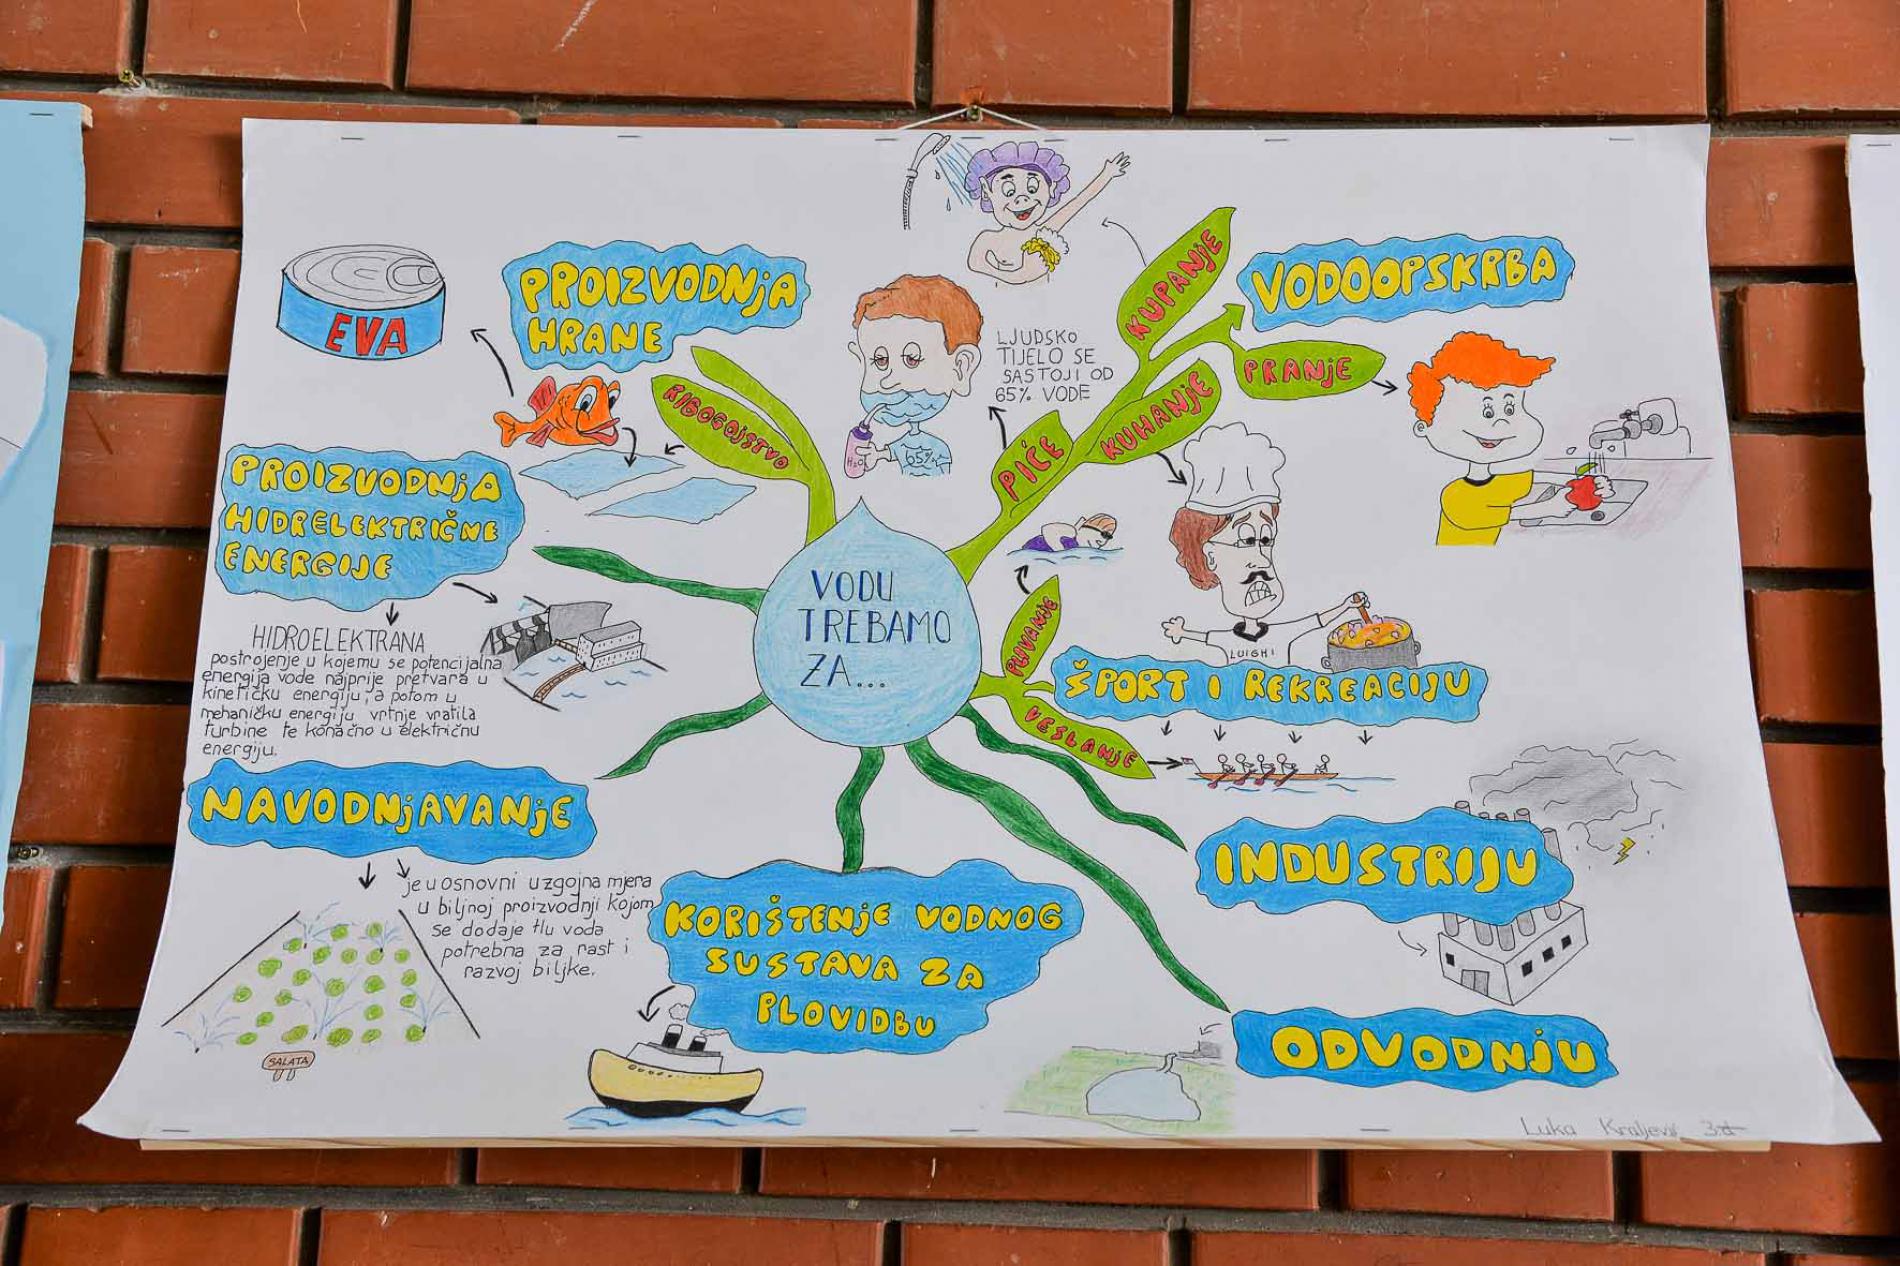 VODU
TREBAMO
ZA...
PROIZVODNJA
HRANE
EVA
RIBOGOJSTVO
LJUDSKO
TIJELO SE
SASTOJI OD
65% VODE
H₂O
65%
KUPANJE
VODOOPSKRBA
PRANJE
KUHANJE
PIĆE
LUIGHI
PLIVANJE
ŠPORT I REKREACIJU
VESLANJE
PROIZVODNJA
HIDRELEKTRIČNE
ENERGIJE
HIDROELEKTRANA
postrojenje u kojemu se potencijalna
energija vode najprije pretvara u
kinetičku energiju, a potom u
mehaničku energiju vrtnje vratila
turbine te konačno u električnu
energiju.
NAVODNJAVANJE
je u osnovni uzgojna mjera
u biljnoj proizvodnji kojom
se dodaje tlu voda
potrebna za rast i
razvoj biljke.
SALATA
KORIŠTENJE VODNOG
SUSTAVA ZA
PLOVIDBU
INDUSTRIJU
ODVODNJU
Luka Kraljević